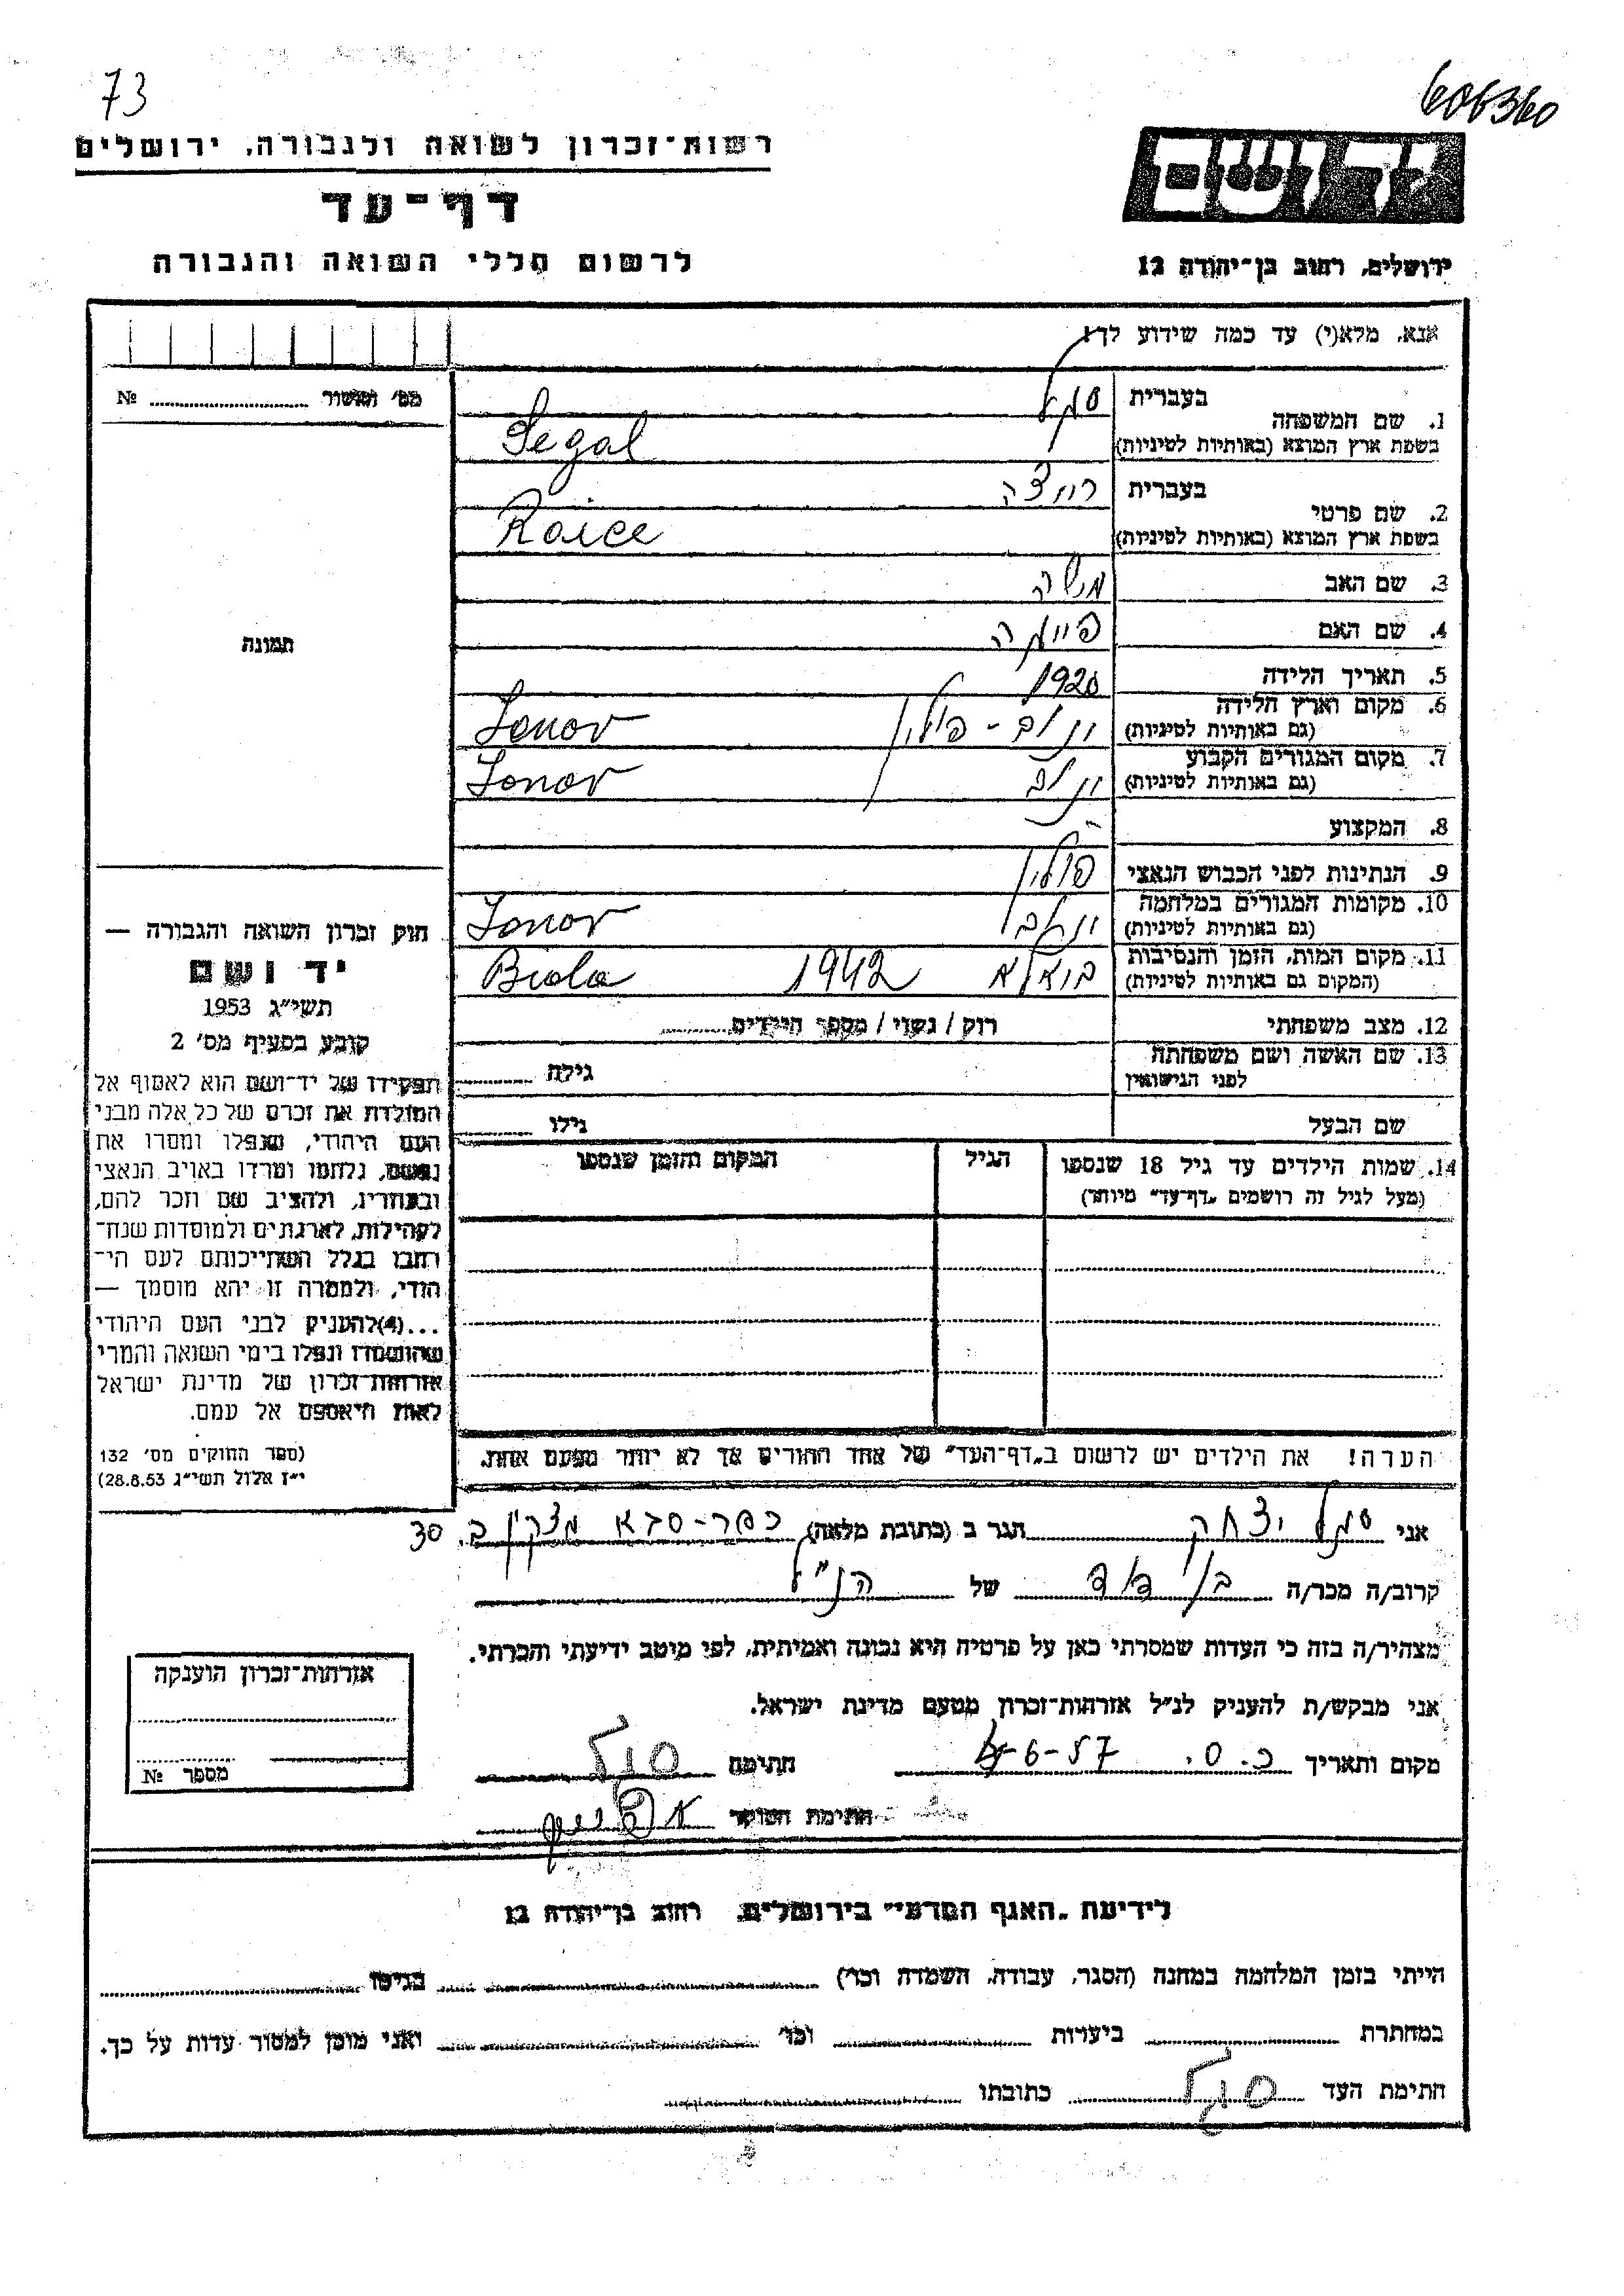 73
606360
רשות־זכרון לשואה ולגבורה, ירושלים
דף־עד
לרשום חללי השואה והגבורה
יד ושם
ירושלים, רחוב בן־יהודה 12
אנא, מלא(י) עד כמה שידוע לך!
מס' תאשור ............ №
1. שם המשפחה
בעברית סגל
בשפת ארץ המוצא (באותיות לטיניות) Segal
2. שם פרטי
בעברית רויצה
בשפת ארץ המוצא (באותיות לטיניות) Roice
3. שם האב משה
4. שם האם פייגה
5. תאריך הלידה 1920
6. מקום וארץ הלידה
(גם באותיות לטיניות) ינוב - פולין Jonov
7. מקום המגורים הקבוע
(גם באותיות לטיניות) ינוב Jonov
8. המקצוע -
9. הנתינות לפני הכבוש הנאצי פולין
10. מקומות המגורים במלחמה
(גם באותיות לטיניות) ינוב Jonov
11. מקום המות, הזמן והנסיבות
(המקום גם באותיות לטיניות) 1942 Biala
12. מצב משפחתי רוק / נשוי / מספר הילדים
13. שם האשה ושם משפחתה
לפני הנישואין גילה
שם הבעל גילו
14. שמות הילדים עד גיל 18 שנספו הגיל המקום והזמן שנספו
(מעל לגיל זה רושמים „דף־עד" מיוחד)
הערה! את הילדים יש לרשום ב„דף־העד" של אחד ההורים אך לא יותר מפעם אחת.
תמונה
חוק זכרון השואה והגבורה —
יד ושם
תשי"ג 1953
קובע בסעיף מס' 2
תפקידו של יד־ושם הוא לאסוף אל
המולדת את זכרם של כל אלה מבני
העם היהודי, שנפלו ומסרו את
נפשם, נלחמו ומרדו באויב הנאצי
ובעוזריו, ולהציב שם וזכר להם,
לקהילות, לארגונים ולמוסדות שנח־
רבו בגלל השתייכותם לעם הי־
הודי, ולמטרה זו יהא מוסמך —
...(4)להעניק לבני העם היהודי
שהושמדו ונפלו בימי השואה והמרי
אזרחות־זכרון של מדינת ישראל
לאות היאספם אל עמם.
(ספר החוקים מס' 132
י"ז אלול תשי"ג 28.8.53)
אני סגל יצחק הגר ב (כתובת מלאה) כפר-סבא ב. 30
קרוב/ה מכר/ה בן דוד של הנ"ל
מצהיר/ה בזה כי העדות שמסרתי כאן על פרטיה היא נכונה ואמיתית, לפי מיטב ידיעתי והכרתי.
אני מבקש/ת להעניק לנ"ל אזרחות־זכרון מטעם מדינת ישראל.
מקום ותאריך כ.ס. 4-6-57 חתימה סגל
חתימת הפוקד
אזרחות־זכרון הוענקה
מספר №
לידיעת „האגף המדעי" בירושלים, רחוב בן־יהודה 12
הייתי בזמן המלחמה במחנה (הסגר, עבודה, השמדה וכו') בגיטו
במחתרת ביערות וכו' ואני מוכן למסור עדות על כך.
חתימת העד סגל כתובתו